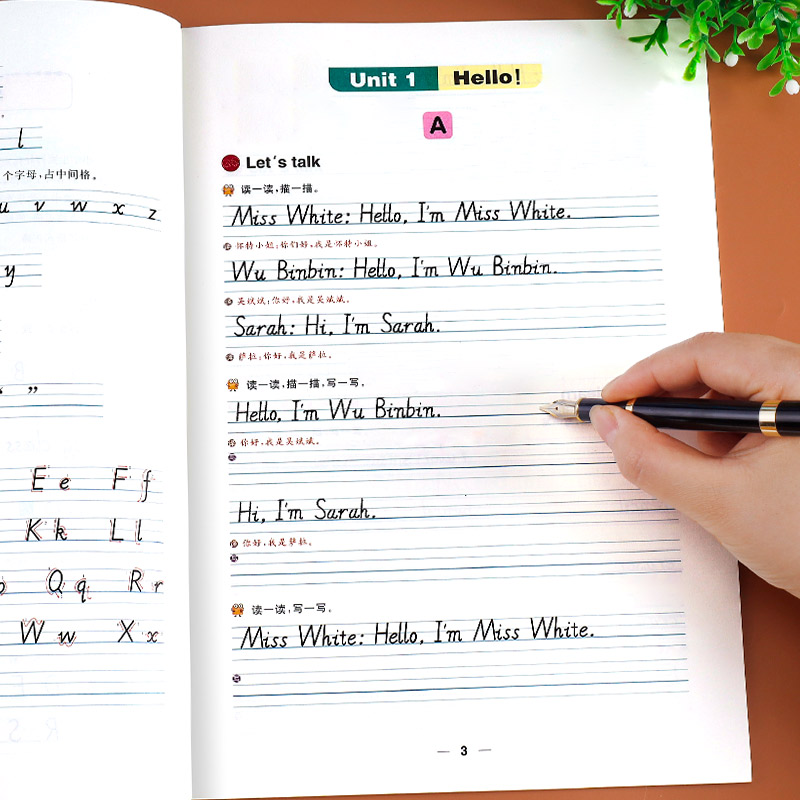 l
个字母，占中间格。
u v w x z
y
“ ”
E e F f
K k L l
Q q R r
W w X x
Unit 1 Hello!
A
Let's talk
读一读，描一描。
Miss White: Hello, I'm Miss White.
怀特小姐：你们好，我是怀特小姐。
Wu Binbin: Hello, I'm Wu Binbin.
吴斌斌：你好，我是吴斌斌。
Sarah: Hi, I'm Sarah.
萨拉：你好，我是萨拉。
读一读，描一描，写一写。
Hello, I'm Wu Binbin.
你好，我是吴斌斌。
Hi, I'm Sarah.
你好，我是萨拉。
读一读，写一写。
Miss White: Hello, I'm Miss White.
3